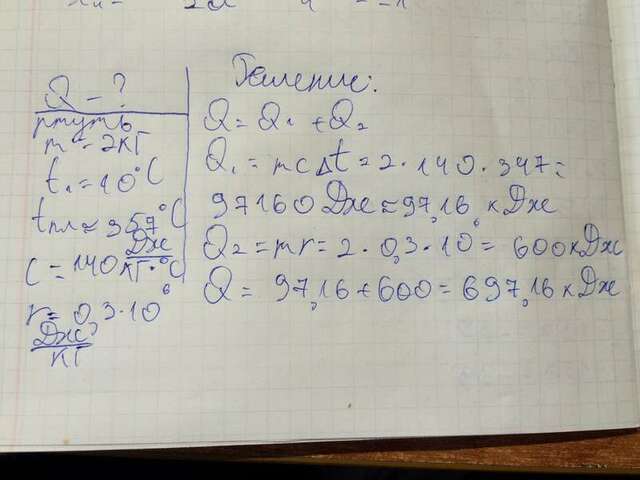 Q - ?
ртуть
m = 2кг
t₁ = 10°C
tпл = 357°C
C = 140 Дж/кг·°C
r = 0,3·10⁶ Дж/кг
Решение:
Q = Q₁ + Q₂
Q₁ = mcΔt = 2·140·347 =
97160 Дж = 97,16 кДж
Q₂ = mr = 2·0,3·10⁶ = 600 кДж
Q = 97,16 + 600 = 697,16 кДж